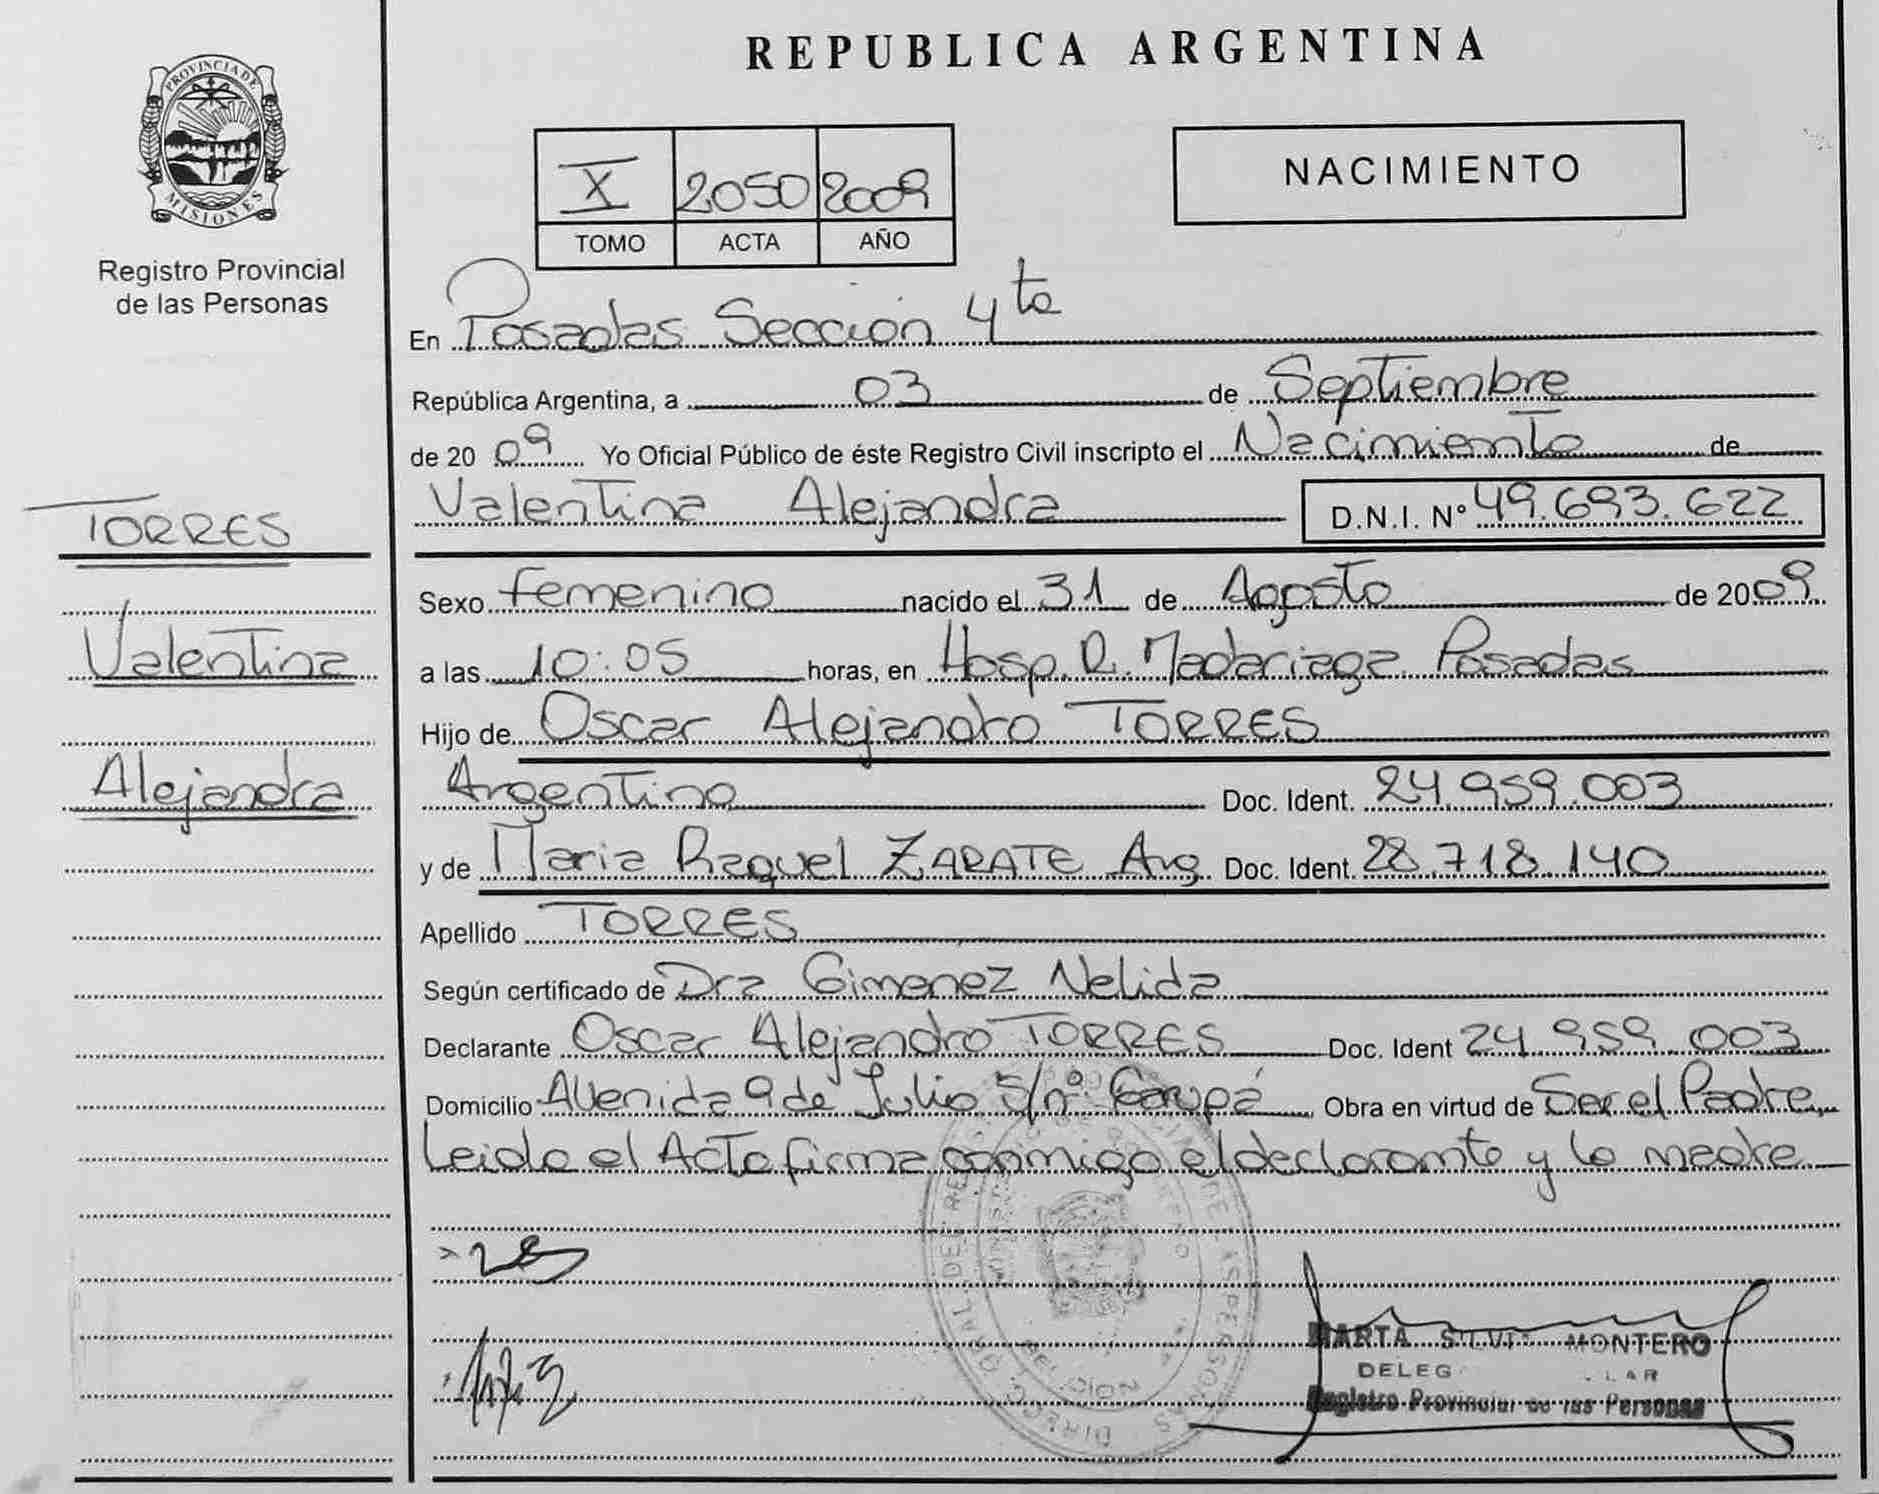 REPUBLICA ARGENTINA
PROVINCIA DE
MISIONES
Registro Provincial
de las Personas
X 2050 2009
TOMO ACTA AÑO
NACIMIENTO
En Posadas Sección 4ta
República Argentina, a 03 de Septiembre
de 2009 Yo Oficial Público de éste Registro Civil inscripto el Nacimiento de
Valentina Alejandra D.N.I. Nº 49.693.622
TORRES
Valentina
Alejandra
Sexo femenino nacido el 31 de Agosto de 2009
a las 10:05 horas, en Hosp. R. Madariaga Posadas
Hijo de Oscar Alejandro TORRES
Argentino Doc. Ident. 24.959.003
y de Maria Raquel ZARATE Arg Doc. Ident. 28.718.140
Apellido TORRES
Según certificado de Dra Gimenez Nelida
Declarante Oscar Alejandro TORRES Doc. Ident 24.959.003
Domicilio Avenida 9 de Julio S/nº Garupá Obra en virtud de Ser el Padre
Leido el Acta firma conmigo el declarante y la madre
MARTA SILVI MONTERO
DELEG LAR
Registro Provincial de las Personas